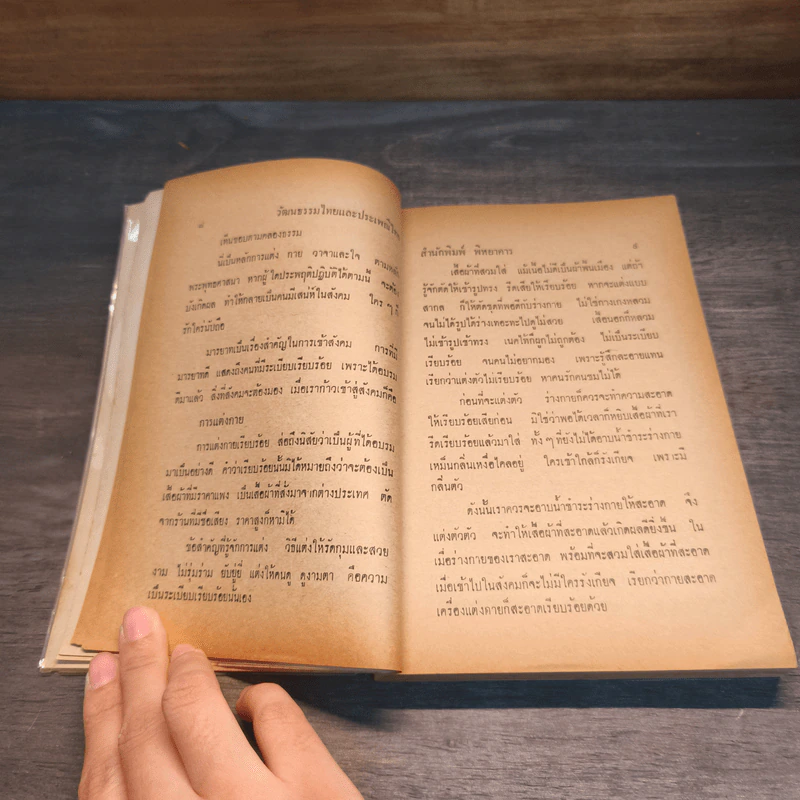 ๘ วัฒนธรรมไทยและประเพณี
เห็นชอบตามคลองธรรม
นี่เป็นหลักการแต่ง กาย วาจาและใจ ตามหลัก
พระพุทธศาสนา หากผู้ใดประพฤติปฏิบัติได้ตามนี้ จะต้อง
บังเกิดผล ทำให้กลายเป็นคนมีเสน่ห์ในสังคม ใคร ๆ ก็
รักใคร่นับถือ
มารยาทเป็นเรื่องสำคัญในการเข้าสังคม การที่มี
มารยาทดี แสดงถึงคนที่มีระเบียบเรียบร้อย เพราะได้อบรม
ดีมาแล้ว สิ่งที่สังคมจะต้องมอง เมื่อเราก้าวเข้าสู่สังคมก็คือ
การแต่งกาย
การแต่งกายเรียบร้อย ส่อถึงนิสัยว่าเป็นผู้ที่ได้อบรม
มาเป็นอย่างดี คำว่าเรียบร้อยนั้นมิได้หมายถึงว่าจะต้องเป็น
เสื้อผ้าที่มีราคาแพง เป็นเสื้อผ้าที่สั่งมาจากต่างประเทศ ตัด
จากร้านที่มีชื่อเสียง ราคาสูงก็หามิได้
ข้อสำคัญที่รู้จักการแต่ง วิธีแต่งให้รัดกุมและสวย
งาม ไม่รุ่มร่าม ยับยู่ยี่ แต่งให้คนดู ดูงามตา คือความ
เป็นระเบียบเรียบร้อยนั้นเอง
สำนักพิมพ์ พิทยาคาร ๙
เสื้อผ้าที่สวมใส่ แม้เนื้อไม่ดีเป็นผ้าพื้นเมือง แต่ถ้า
รู้จักตัดให้เข้ารูปทรง รีดเสียให้เรียบร้อย หากจะแต่งแบบ
สากล ก็ให้ตัดชุดที่พอดีกับร่างกาย ไม่ใช่กางเกงหลวม
จนไม่ได้รูปได้ร่างเทอะทะไปดูไม่สวย เสื้อนอกก็หลวม
ไม่เข้ารูปเข้าทรง เนคไทก็ผูกไม่ถูกต้อง ไม่เป็นระเบียบ
เรียบร้อย จนคนไม่อยากมอง เพราะรู้สึกละอายแทน
เรียกว่าแต่งตัวไม่เรียบร้อย หาคนรักคนชมไม่ได้
ก่อนที่จะแต่งตัว ร่างกายก็ควรจะทำความสะอาด
ให้เรียบร้อยเสียก่อน มิใช่ว่าพอได้เวลาก็หยิบเสื้อผ้าที่เรา
รีดเรียบร้อยแล้วมาใส่ ทั้ง ๆ ที่ยังไม่ได้อาบน้ำชำระร่างกาย
เหม็นกลิ่นเหงื่อไคลอยู่ ใครเข้าใกล้ก็รังเกียจ เพราะมี
กลิ่นตัว
ดังนั้นเราควรจะอาบน้ำชำระร่างกายให้สะอาด จึง
แต่งตัวตัว จะทำให้เสื้อผ้าที่สะอาดแล้วเกิดผลดียิ่งขึ้น ใน
เมื่อร่างกายของเราสะอาด พร้อมที่จะสวมใส่เสื้อผ้าที่สะอาด
เมื่อเข้าไปในสังคมก็จะไม่มีใครรังเกียจ เรียกว่ากายสะอาด
เครื่องแต่งกายก็สะอาดเรียบร้อยด้วย